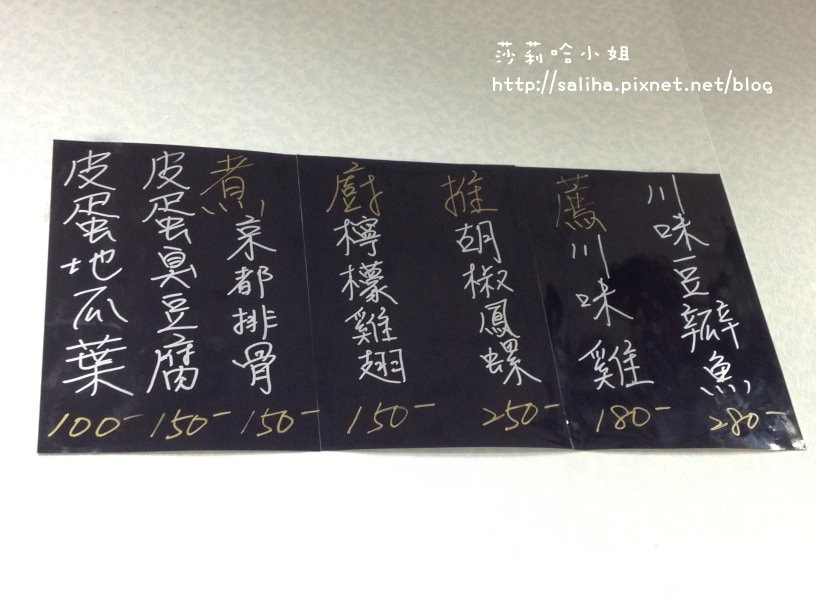 莎莉哈小姐
http://saliha.pixnet.net/blog
煮廚推薦
皮蛋地瓜葉 100-
皮蛋臭豆腐 150-
京都排骨 150-
檸檬雞翅 150-
胡椒鳳螺 250-
川味雞 180-
川味豆瓣魚 280-